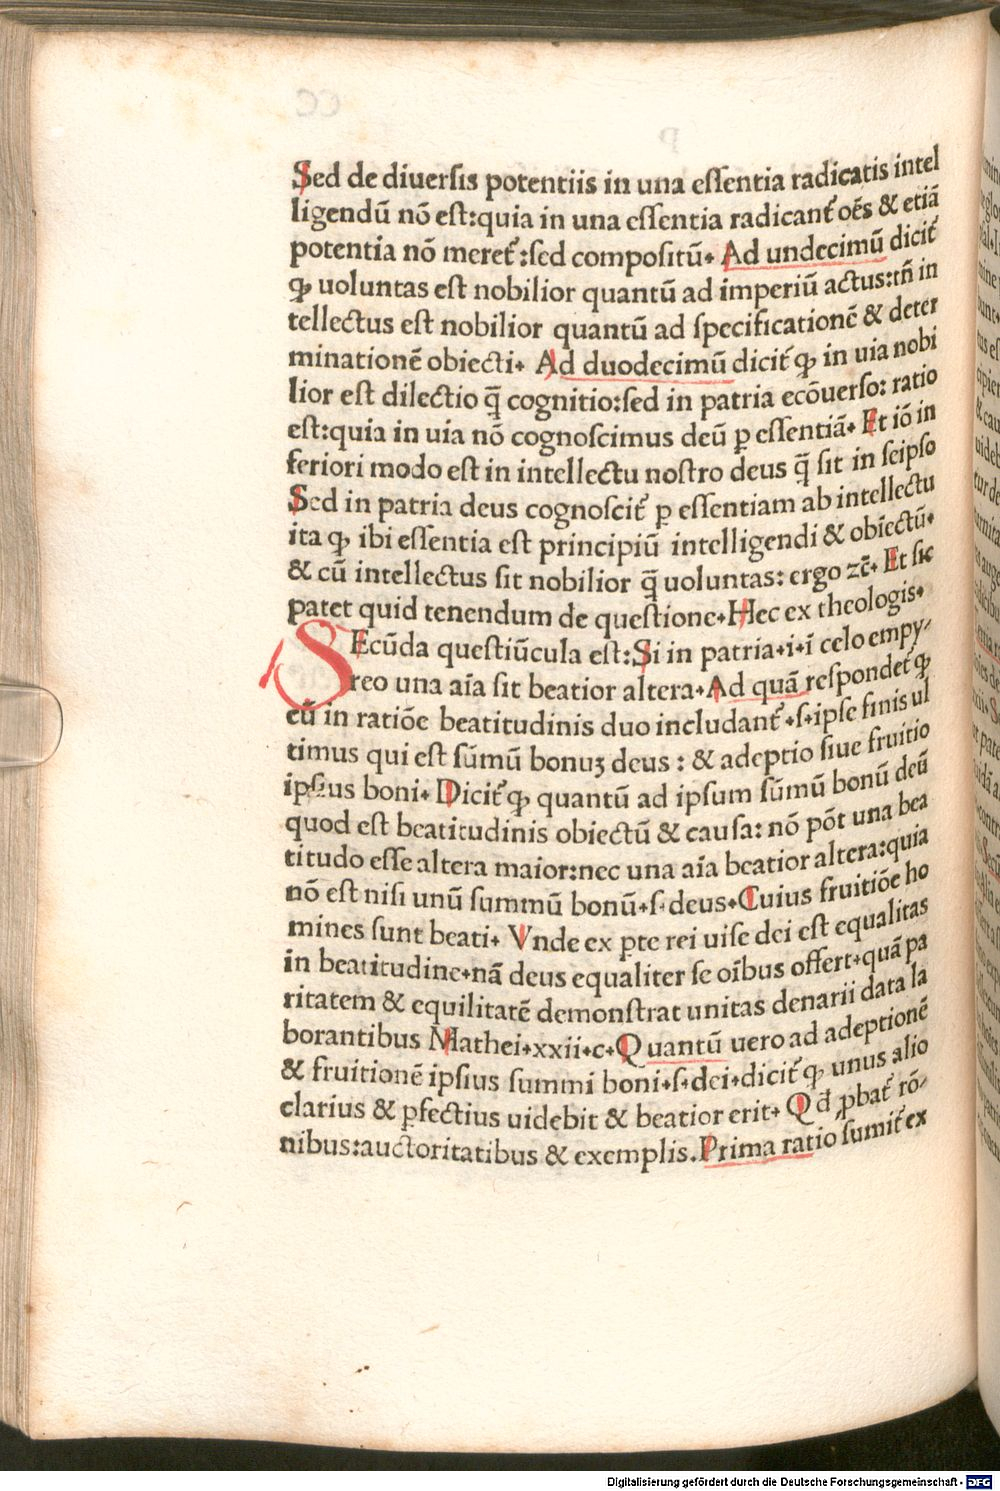 Sed de diuersis potentiis in una essentia radicatis intel
ligendū nō est:quia in una essentia radicant᷑ oēs & etiā
potentia nō meret᷑:sed compositū. Ad undecimū dicit᷑
ꝙ uoluntas est nobilior quantū ad imperiū actus:tn̄ in
tellectus est nobilior quantū ad specificationē & deter
minationē obiecti. Ad duodecimū dicit᷑ ꝙ in uia nobi
lior est dilectio q̄ cognitio:sed in patria ecōuerso: ratio
est:quia in uia nō cognoscimus deū p essentiā. Et iō in
feriori modo est in intellectu nostro deus q̄ sit in seipso
Sed in patria deus cognoscit᷑ p essentiam ab intellectu
ita ꝙ ibi essentia est principiū intelligendi & obiectū.
& cū intellectus sit nobilior q̄ uoluntas: ergo zc̄. Et sic
patet quid tenendum de questione.Hec ex theologis.
SEcūda questiūcula est:Si in patria.i.ī celo empy-
reo una aīa sit beatior altera.Ad quā respondet᷑ ꝙ
cū in ratiōe beatitudinis duo includant᷑.s.ipse finis ul
timus qui est sūmū bonuꝫ deus : & adeptio siue fruitio
ipsius boni. Dicit᷑ ꝙ quantū ad ipsum sūmū bonū deū
quod est beatitudinis obiectū & causa: nō pōt una bea
titudo esse altera maior:nec una aīa beatior altera:quia
nō est nisi unū summū bonū.s.deus.Cuius fruitiōe ho
mines sunt beati. Vnde ex pte rei uise dei est equalitas
in beatitudine.nā deus equaliter se oībus offert.quā pa
ritatem & equilitatē demonstrat unitas denarii data la
borantibus Mathei.xxii.c.Quantū uero ad adeptionē
& fruitionē ipsius summi boni.s.dei.dicit᷑ ꝙ unus alio
clarius & ꝑfectius uidebit & beatior erit. Qd̄ ꝓbat᷑ rō-
nibus:auctoritatibus & exemplis.Prima ratio sumit᷑ ex
Digitalisierung gefördert durch die Deutsche Forschungsgemeinschaft - DFG